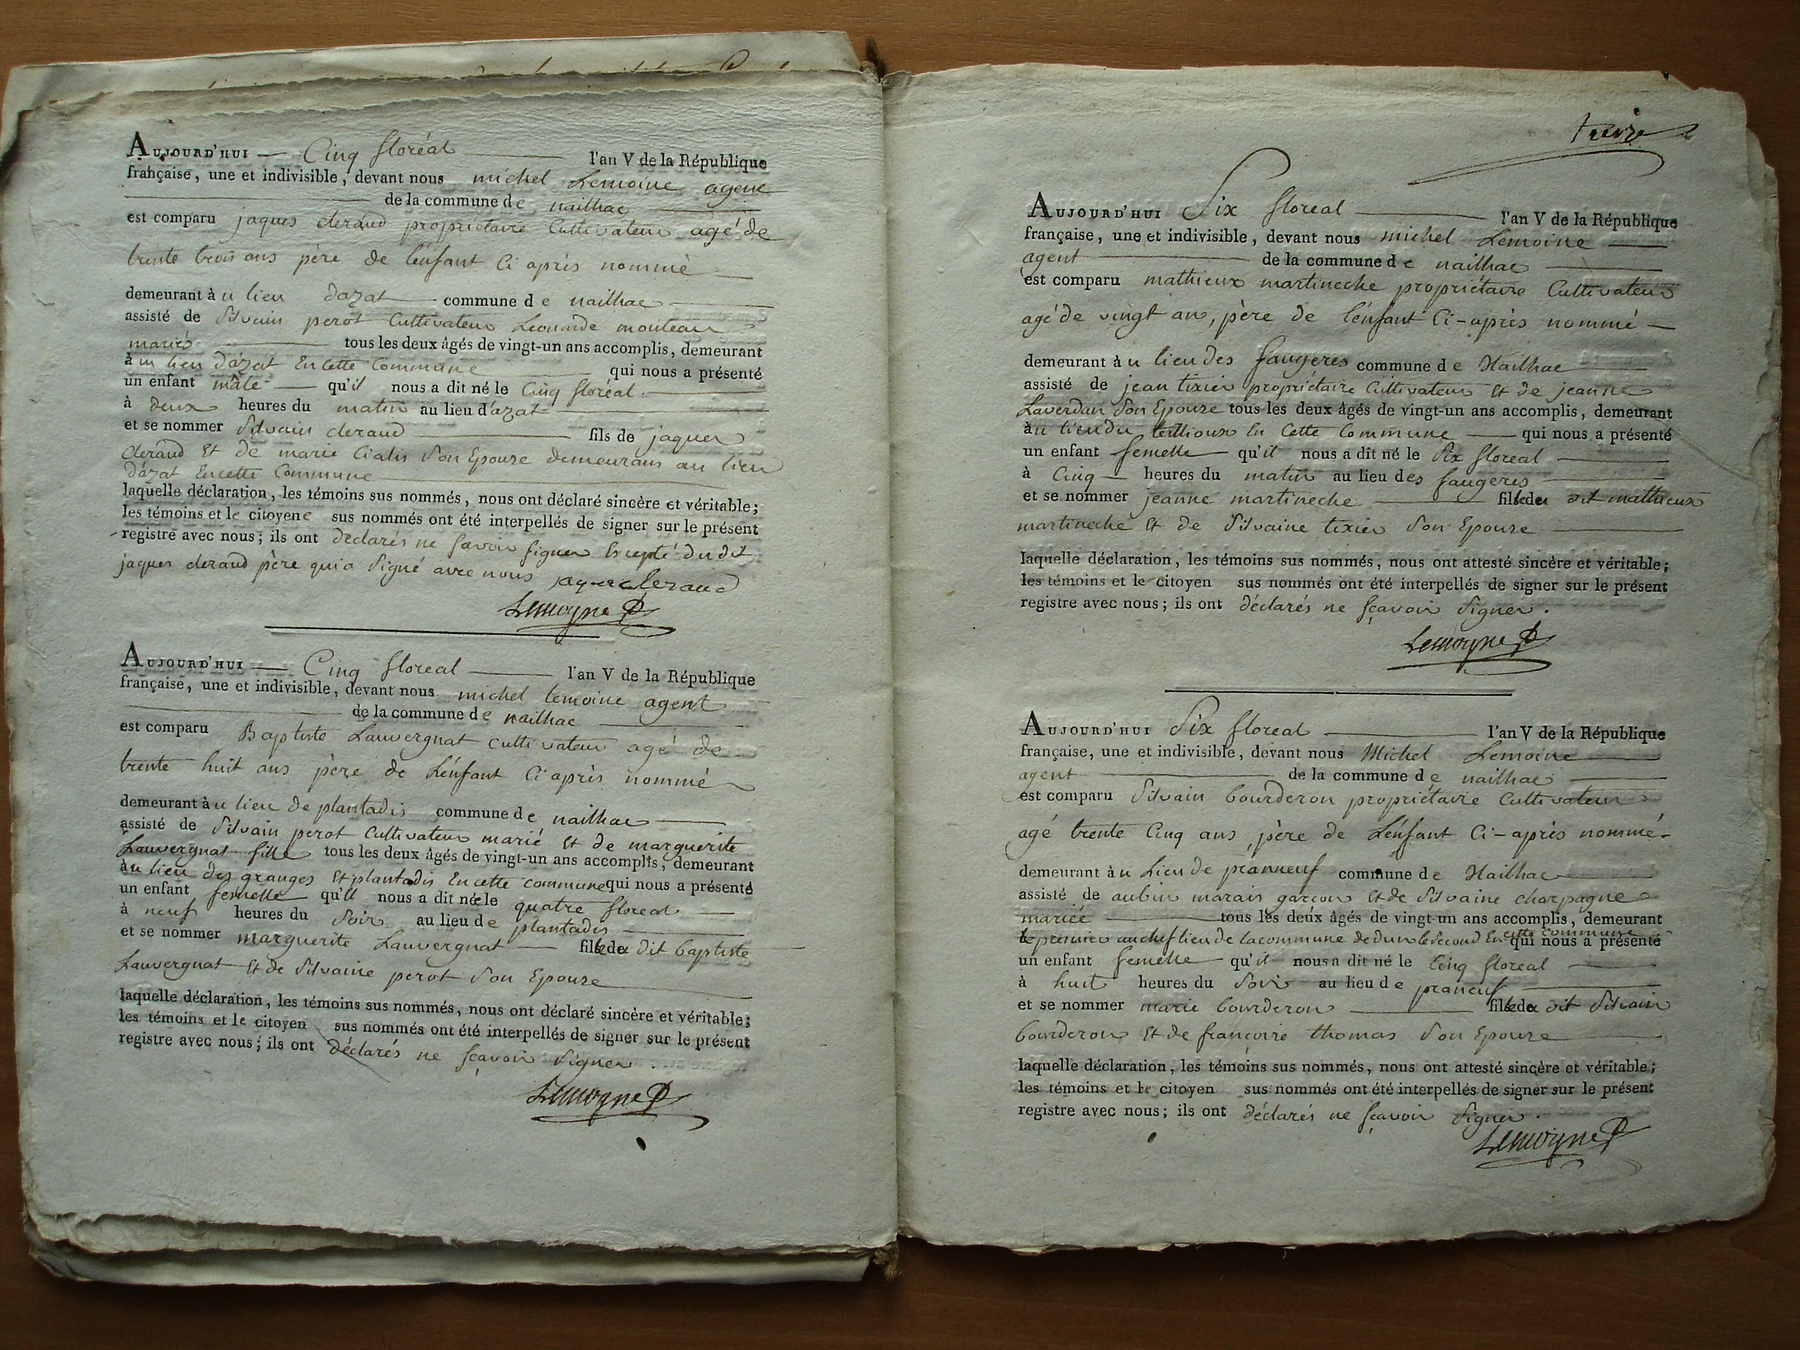 AUJOURD'HUI — Cinq floréal — l'an V de la République
française, une et indivisible, devant nous michel Lemoine agent
de la commune de nailhac
est comparu jaques deraud propriétaire Cultivateur agé de
trente trois ans père de l'énfant Ci après nommé
demeurant à u lieu dazat commune de nailhac
assisté de Silvain perot Cultivateur Léonarde monteau
mariés tous les deux âgés de vingt-un ans accomplis, demeurant
à un lieu Dázat En cette Commune qui nous a présenté
un enfant mâle — qu'il nous a dit né le Cinq floréal
à deux heures du matin au lieu d'azat
et se nommer Silvain deraud fils de jaques
deraud Et de marie Cialis Son Epouse demeurans au lieu
Dázat En cette Commune
laquelle déclaration, les témoins sus nommés, nous ont déclaré sincère et véritable;
les témoins et le citoyene sus nommés ont été interpellés de signer sur le présent
registre avec nous; ils ont déclarés ne savoir signer Excepté du dit
jaques deraud père qui a Signé avec nous jaques deraud
Lemoyne
AUJOURD'HUI — Cinq floréal — l'an V de la République
française, une et indivisible, devant nous michel lemoine agent
de la commune de nailhac
est comparu Baptiste Lauvergnat cultivateur agé de
trente huit ans père de L'énfant Ci après nommé
demeurant à u lieu de plantadis commune de nailhac
assisté de Silvain perot Cultivateur marié Et de marguerite
Lauvergnat fille tous les deux âgés de vingt-un ans accomplis, demeurant
à u lieu des granges Et plantadis En cette commune qui nous a présenté
un enfant femelle qu'Il nous a dit née le quatre floreal
à neuf heures du Soir au lieu de plantadis
et se nommer marguerite Lauvergnat — fille du dit baptiste
Lauvergnat Et de Silvaine perot Son Epouse
laquelle déclaration, les témoins sus nommés, nous ont déclaré sincère et véritable;
les témoins et le citoyen sus nommés ont été interpellés de signer sur le présent
registre avec nous; ils ont déclarés ne sçavoir Signer.
Lemoyne
treize
AUJOURD'HUI Six floreal — l'an V de la République
française, une et indivisible, devant nous michel Lemoine
agent de la commune de nailhac
est comparu mathieux martineche propriétaire Cultivateur
agé de vingt an, père de l'énfant Ci-après nommé —
demeurant à u lieu des faugeres commune de Nailhac
assisté de jean tixier propriétaire Cultivateur Et de jeanne
Laverdan Son Epouze tous les deux âgés de vingt-un ans accomplis, demeurant
à u lieu du teillioux En Cette Commune — qui nous a présenté
un enfant femelle — qu'il nous a dit né le Six floreal
à Cinq — heures du matin au lieu des faugeres
et se nommer jeanne martineche — fille du dit mathieux
martineche Et de Silvaine tixier Son Epouze
laquelle déclaration, les témoins sus nommés, nous ont attesté sincère et véritable;
les témoins et le citoyen sus nommés ont été interpellés de signer sur le présent
registre avec nous; ils ont déclarés ne sçavoir Signer.
Lemoyne
AUJOURD'HUI Six floreal — l'an V de la République
française, une et indivisible, devant nous Michel Lemoine
agent de la commune de nailhac
est comparu Silvain bourderon propriétaire Cultivateur
agé trente Cinq ans, père de L'énfant Ci-après nommé-
demeurant à u Lieu de pranneuf commune de Nailhac
assisté de aubin marais garcon Et de Silvaine charpagne
mariée tous les deux âgés de vingt-un ans accomplis, demeurant
le premier au chef lieu de la commune de dun le Second En cette commune qui nous a présenté
un enfant femelle — qu'il nous a dit né le Cinq floreal
à huit heures du Soir au lieu de praneuf
et se nommer marie bourderon — fille du dit Silvain
bourderon Et de françoise thomas Son Epouze
laquelle déclaration, les témoins sus nommés, nous ont attesté sincère et véritable;
les témoins et le citoyen sus nommés ont été interpellés de signer sur le présent
registre avec nous; ils ont déclarés ne sçavoir Signer.
Lemoyne